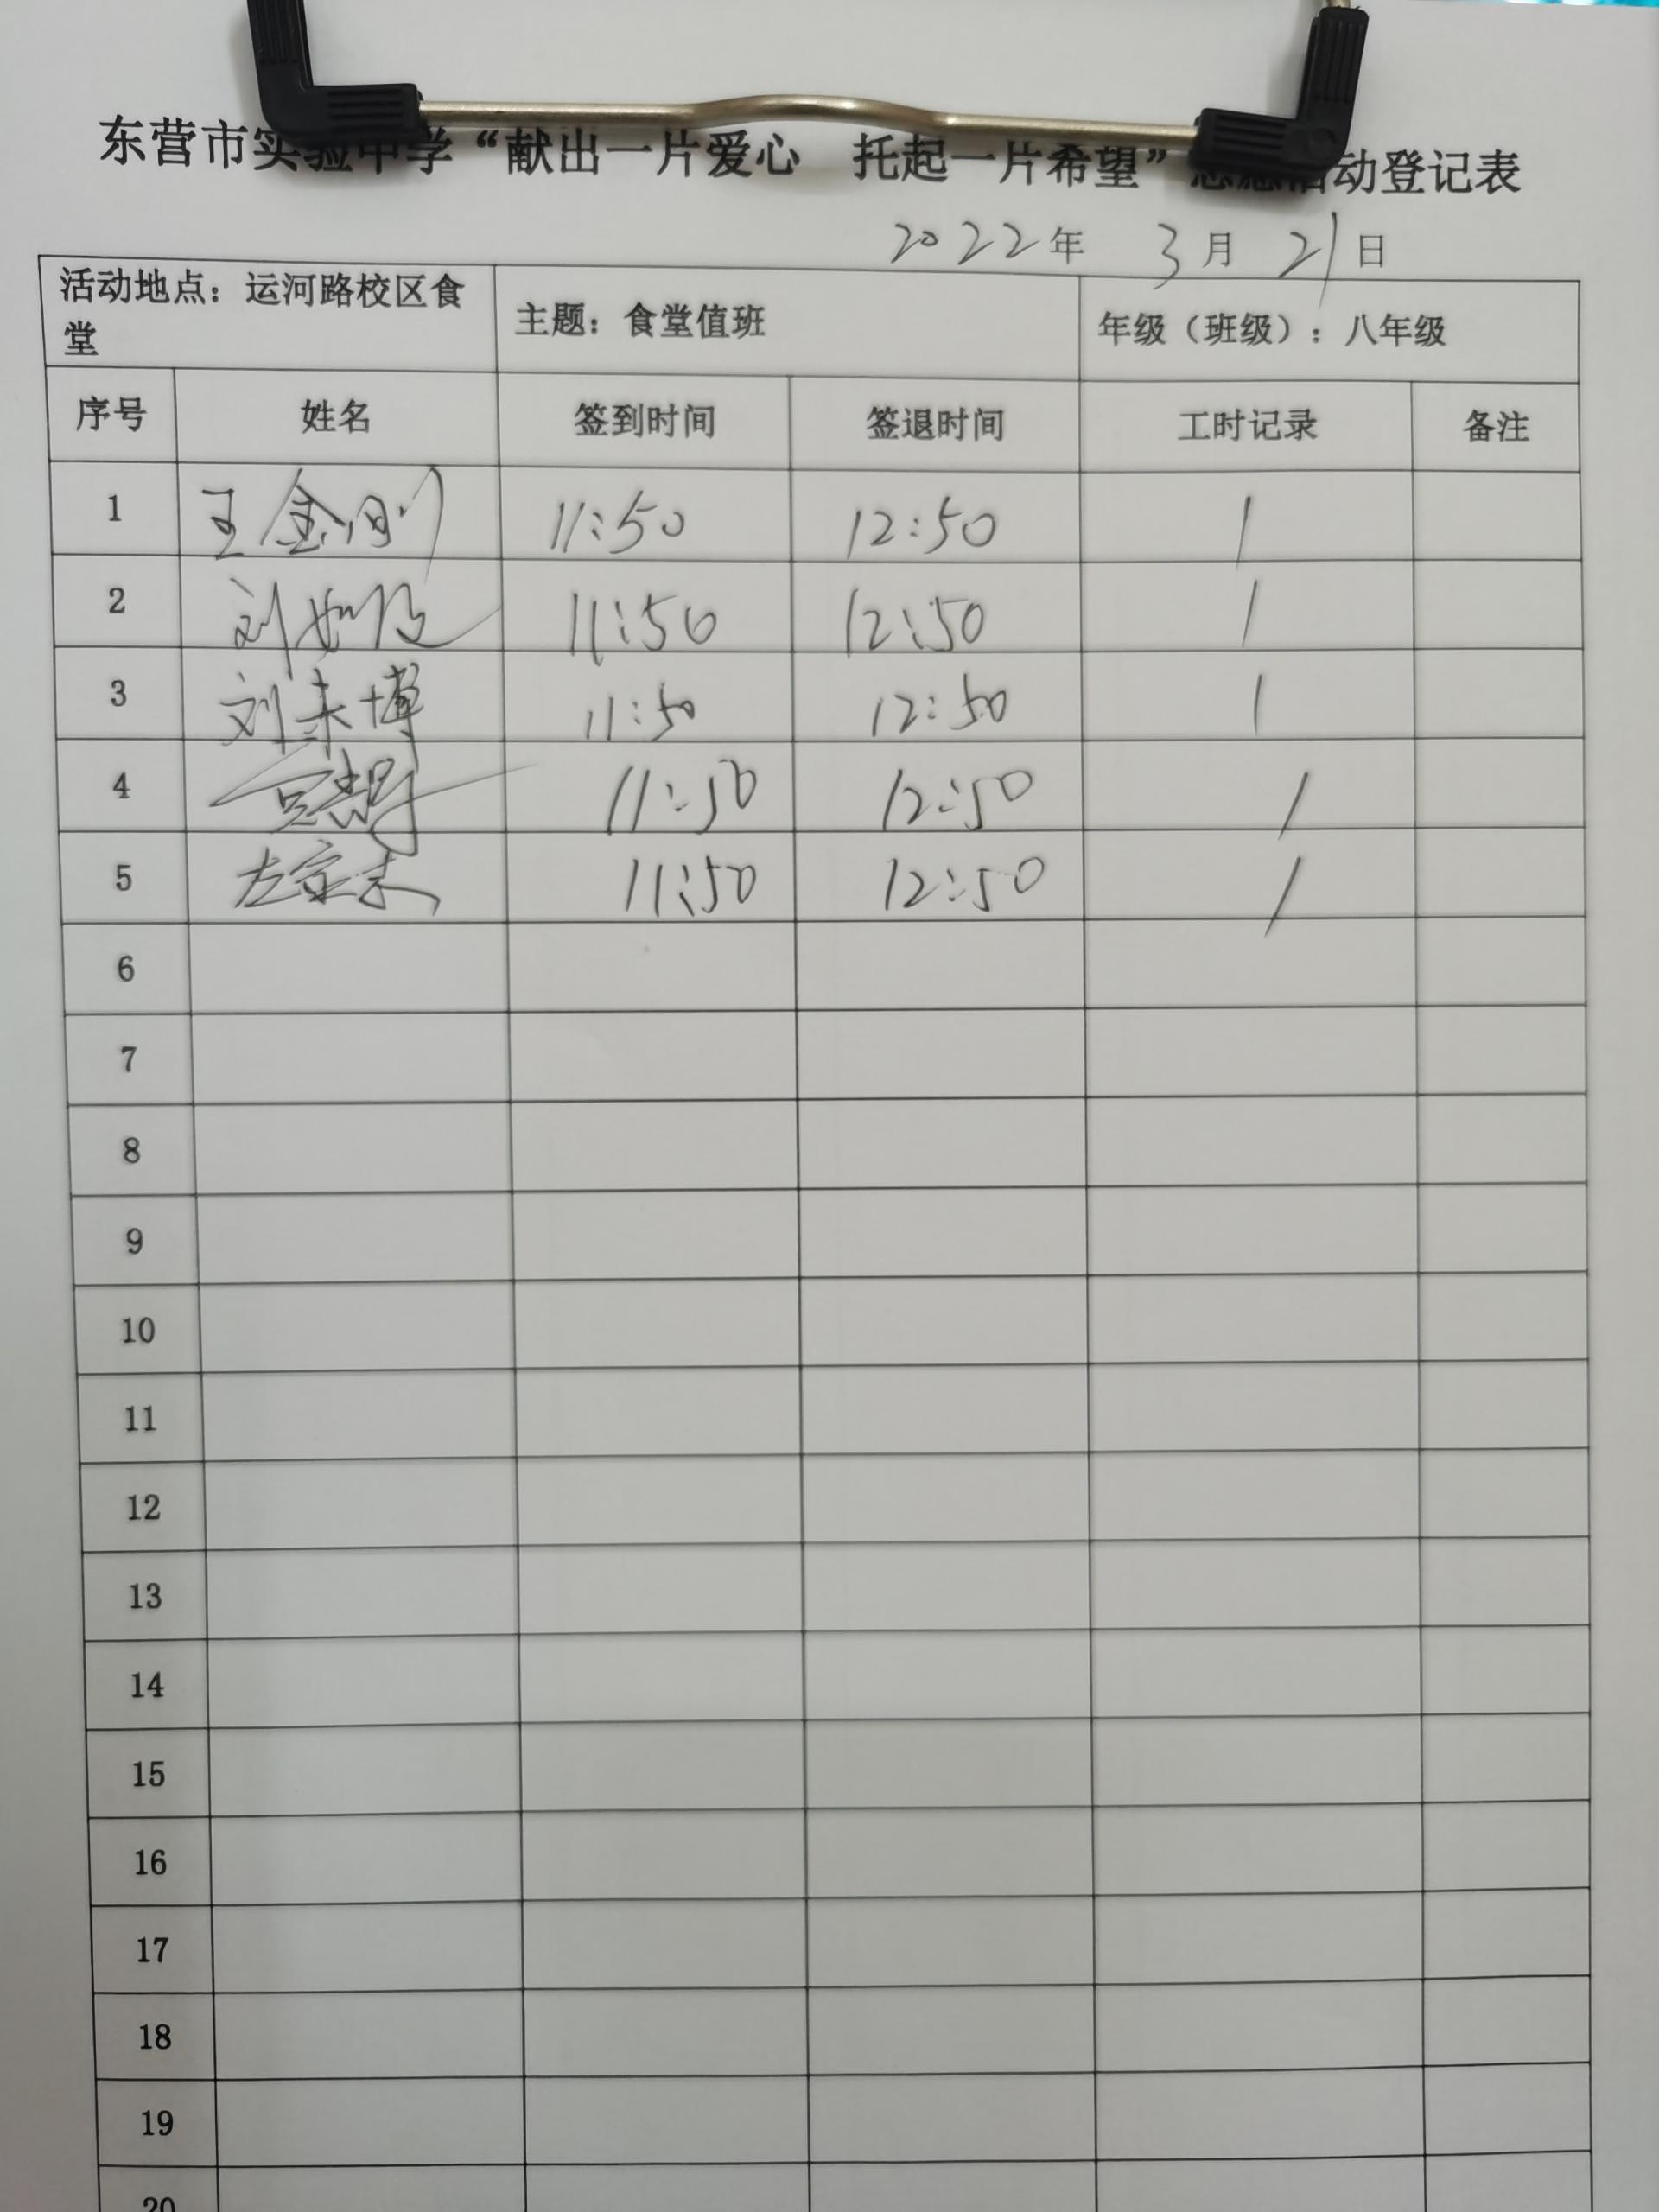 东营市实验中学“献出一片爱心 托起一片希望”志愿活动登记表
2022年 3月 21日
活动地点：运河路校区食堂 主题：食堂值班 年级（班级）：八年级
序号 姓名 签到时间 签退时间 工时记录 备注
1 王金刚 11:50 12:50 1
2 刘 11:50 12:50 1
3 刘来博 11:50 12:50 1
4 11:50 12:50 1
5 左 11:50 12:50 1
6
7
8
9
10
11
12
13
14
15
16
17
18
19
20